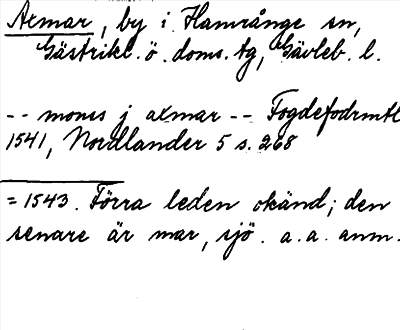 Axmar, by i Hamrånge sn,
Gästrikl. ö. doms. tg, Gävleb. l.
-- mons j axmar -- Fogdefodrmtl
1541, Nordlander 5 s. 268
= 1543. Förra leden okänd; den
senare är mar, sjö. a. a. anm.